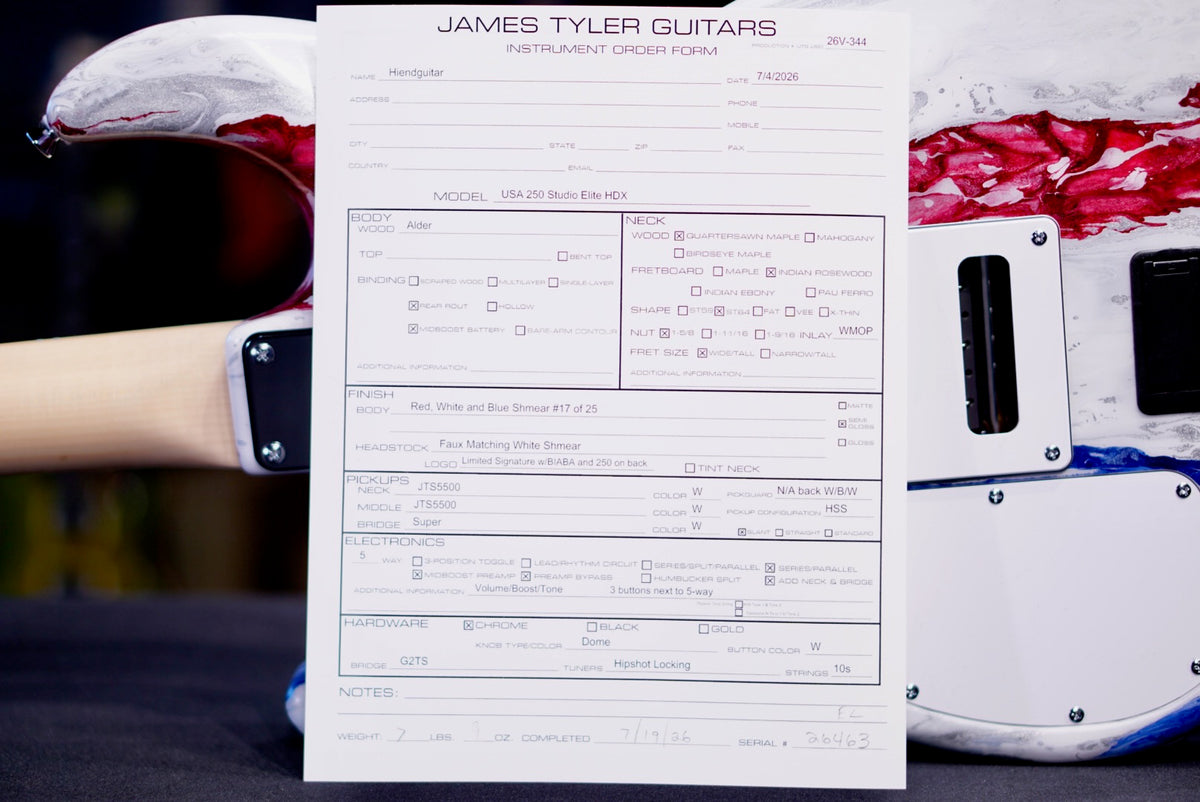 JAMES TYLER GUITARS
INSTRUMENT ORDER FORM
26V-344
NAME Hiendguitar DATE 7/4/2026
ADDRESS PHONE
MOBILE
CITY STATE ZIP FAX
COUNTRY EMAIL
MODEL USA 250 Studio Elite HDX
BODY
WOOD Alder
TOP BENT TOP
BINDING SCRAPED WOOD MULTILAYER SINGLE-LAYER
REAR ROUT HOLLOW
MIDBOOST BATTERY BARE-ARM CONTOUR
ADDITIONAL INFORMATION
NECK
WOOD QUARTERSAWN MAPLE MAHOGANY
BIRDSEYE MAPLE
FRETBOARD MAPLE INDIAN ROSEWOOD
INDIAN EBONY PAU FERRO
SHAPE ST59 ST64 FAT VEE X-THIN
NUT 1-5/8 1-11/16 1-9/16 INLAY WMOP
FRET SIZE WIDE/TALL NARROW/TALL
ADDITIONAL INFORMATION
FINISH
BODY Red, White and Blue Shmear #17 of 25
MATTE
SEMI GLOSS
GLOSS
HEADSTOCK Faux Matching White Shmear
LOGO Limited Signature w/BIABA and 250 on back TINT NECK
PICKUPS
NECK JTS5500 COLOR W PICKGUARD N/A back W/B/W
MIDDLE JTS5500 COLOR W PICKUP CONFIGURATION HSS
BRIDGE Super COLOR W SLANT STRAIGHT STANDARD
ELECTRONICS
5 WAY 3-POSITION TOGGLE LEAD/RHYTHM CIRCUIT SERIES/SPLIT/PARALLEL SERIES/PARALLEL
MIDBOOST PREAMP PREAMP BYPASS HUMBUCKER SPLIT ADD NECK & BRIDGE
ADDITIONAL INFORMATION Volume/Boost/Tone 3 buttons next to 5-way
HARDWARE CHROME BLACK GOLD
KNOB TYPE/COLOR Dome BUTTON COLOR W
BRIDGE G2TS TUNERS Hipshot Locking STRINGS 10s
NOTES:
FL
WEIGHT: 7 LBS. 9 OZ. COMPLETED 7/19/26 SERIAL # 26463